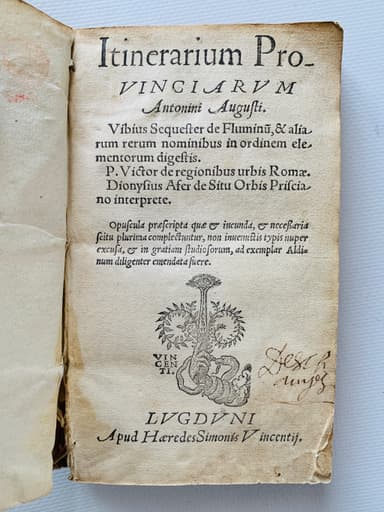 Itinerarium Pro-
VINCIARVM
Antonini Augusti.
Vibius Sequester de Fluminū, & alia
rum rerum nominibus in ordinem ele-
mentorum digestis.
P. Victor de regionibus urbis Romæ.
Dionysius Afer de Situ Orbis Priscia-
no interprete.
Opuscula præscripta quæ & iucunda, & necessaria
scitu plurima complectuntur, non inuenustis typis nuper
excusa, & in gratiam studiosorum, ad exemplar Aldi-
num diligenter emendata fuere.
VIN
CEN
TI.
LVGDVNI
Apud Hæredes Simonis Vincentij.